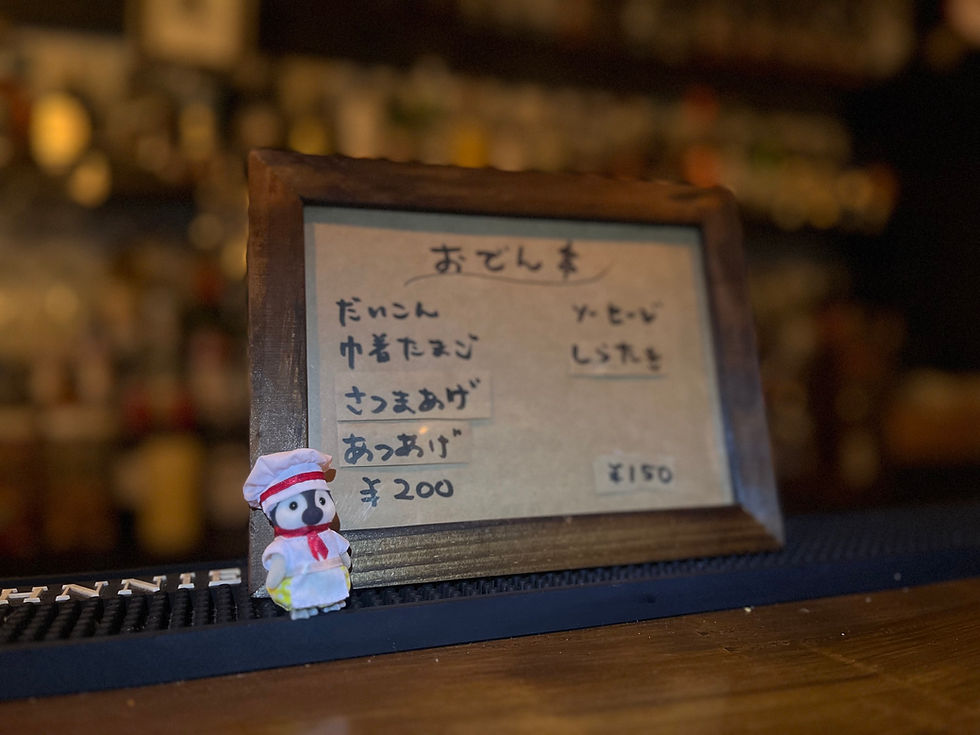 おでん
だいこん
巾着たまご
さつまあげ
あつあげ
¥200
ソーセージ
しらたき
¥150
HNNIE